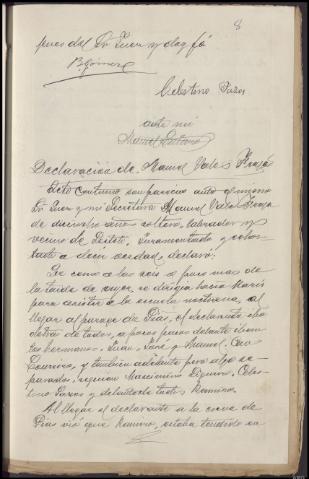 8
pues del Sr Juez y doy fé
B. Gómez
Celestino Pazos
ante mi
Manuel
Declaración de Manuel Vales
Acto continuo comparecio ante el mismo
Sr Juez y mi Secretario Manuel Vales
de diecisiete años soltero, labrador y
vecino de Juramentado y exhor-
tado a decir verdad, declaró:
Que como a las seis ó poco mas de
la tarde de ayer se dirigia hacia
para asistir a la escuela nocturna, al
llegar al paraje de Pias, el declarante iba
detras de todos, a pocos pasos delante iban
los hermanos Juan, José y Manuel
y tambien adelante pero algo se-
parados, seguian Maximino Celes-
tino Pazos y delante de todos Ramiro.
Al llegar el declarante a la cueva de
Pias vió que Ramiro, estaba tendido en